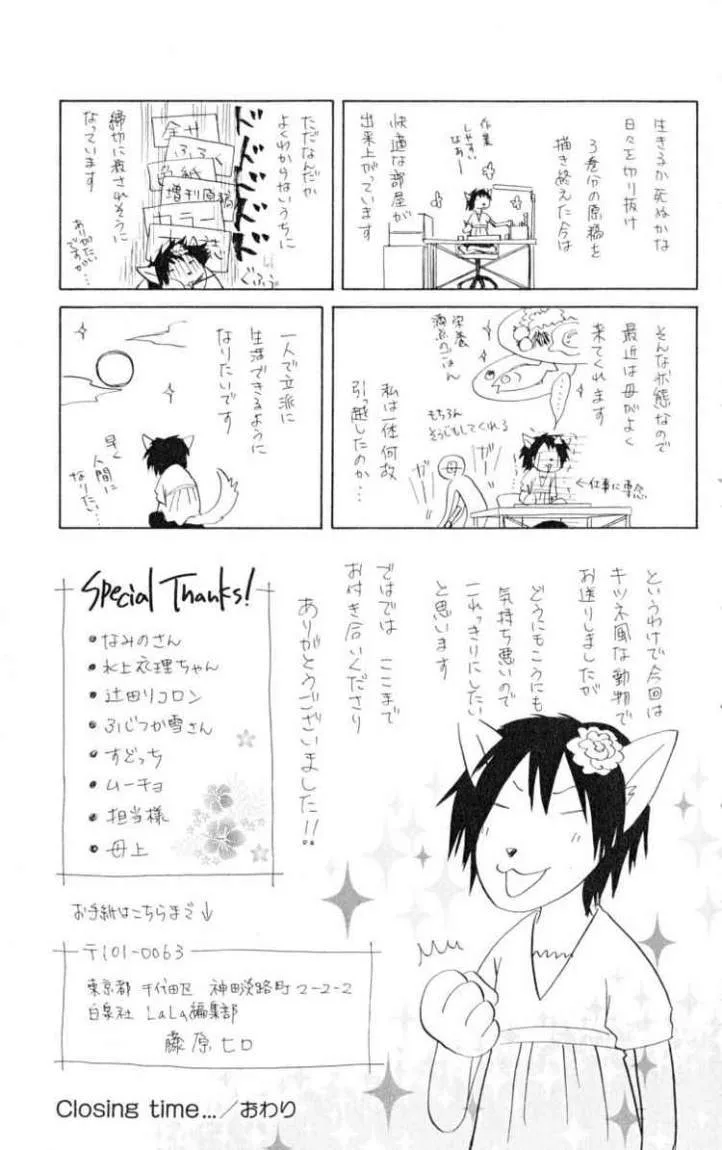 生きるか死ぬかな
日々を切り抜け
3巻分の原稿を
描き終えた今は
作業
しやすい
なあー
快適な部屋が
出来上がっています
ただなんだか
よくわからないうちに
ドドドドド
全サ
ふろく
色紙
増刊原稿
カラー
締切に殺されそうに
なっています
ありがたい
ですが…
ぐふっ
そんな状態なので
最近は母がよく
来てくれます
栄養
満点のごはん
もちろん
そうじもしてくれる
ガー
ガー
母
←仕事に専念
私は一体何故
引っ越したのか…
一人で立派に
生活できるように
なりたいです
早く
人間に
なりたい…
というわけで今回は
キツネ風な動物で
お送りしましたが
どうにもこうにも
気持ち悪いので
これっきりにしたい
と思います
ではでは ここまで
お付き合いくださり
ありがとうございました!!
Special Thanks!
・なみのさん
・水上衣理ちゃん
・辻田リコロン
・ふじつか雪さん
・すどっち
・ムーチョ
・担当様
・母上
お手紙はこちらまで↓
〒101-0063
東京都 千代田区 神田淡路町2-2-2
白泉社 LaLa編集部
藤原ヒロ
Closing time…/おわり